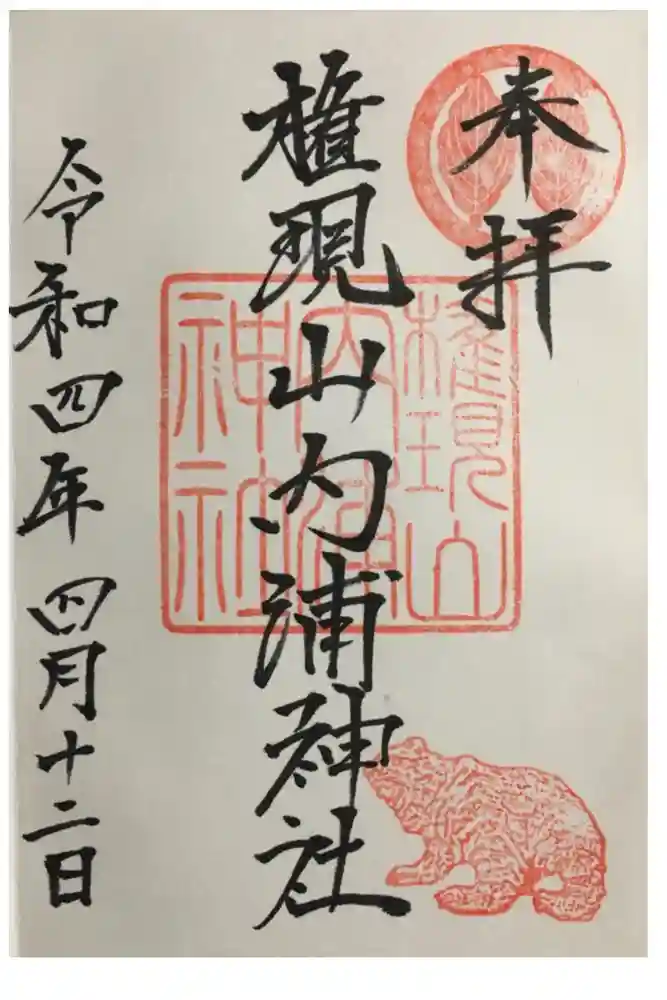 奉拝
権現山内浦神社
権現山
内浦
神社
令和四年四月十二日